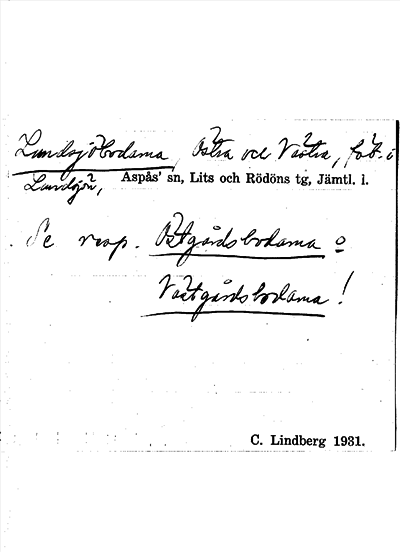 Lundsjöbodarna, Östra och Västra, fäb. i
Lundsjön, Aspås' sn, Lits och Rödöns tg, Jämtl. l.
Se resp. Östgårdsbodarna o
Västgårdsbodarna!
C. Lindberg 1931.